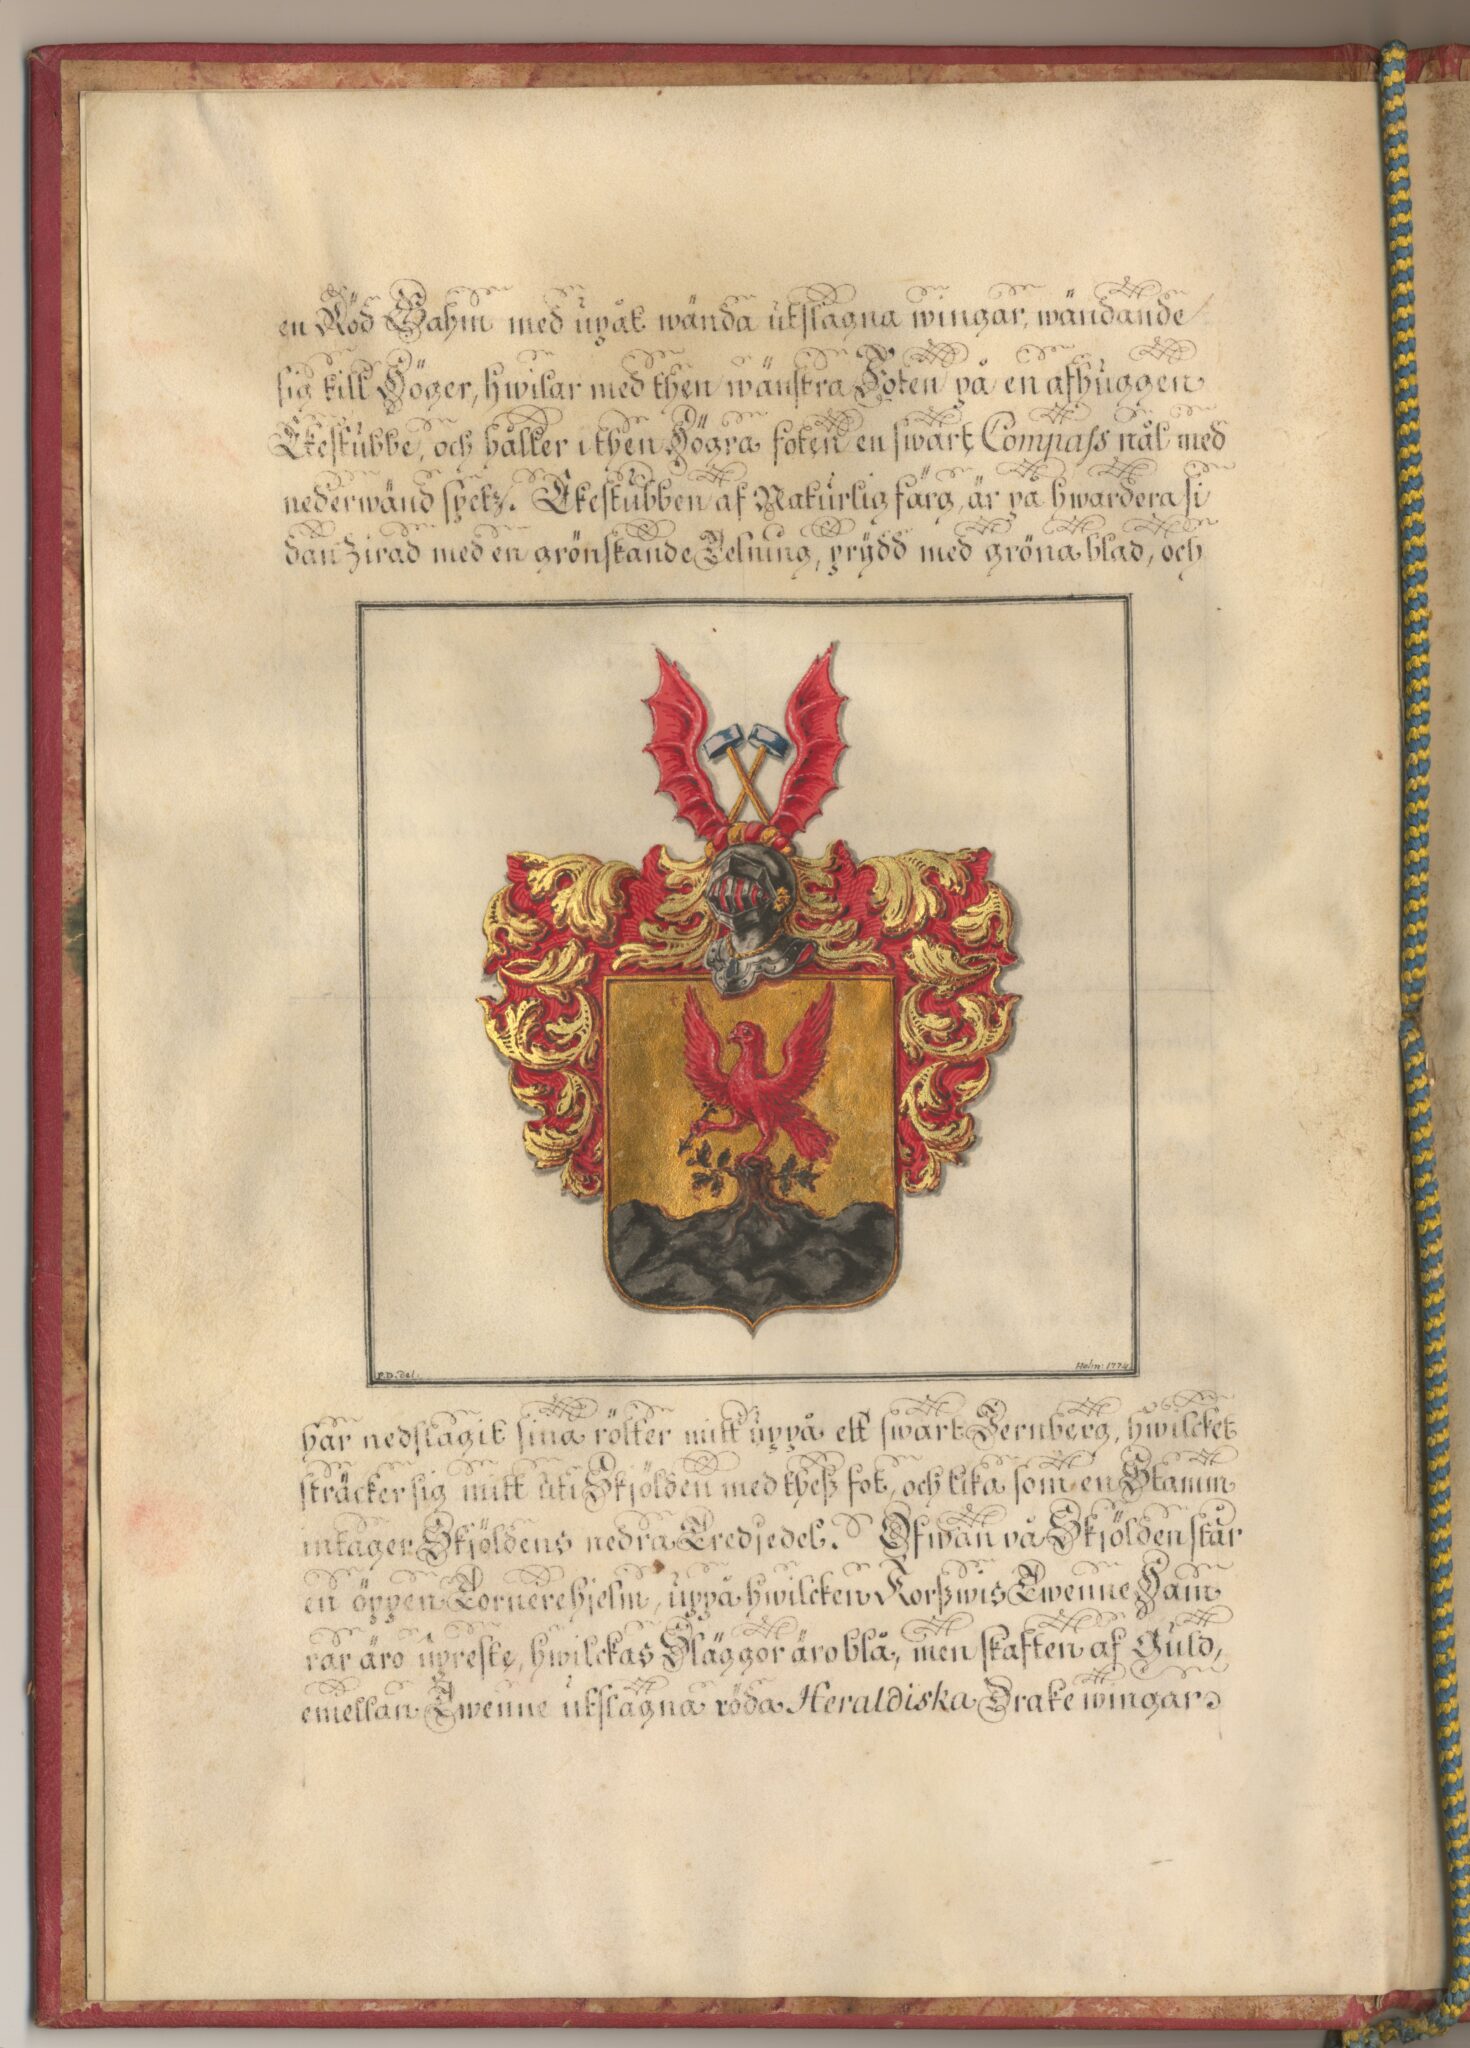 en Röd Gahm med upåt wända utslagna wingar, wändande
sig till Höger, hwilar med then wänstra Foten på en afhuggen
Ekestubbe, och håller i then Högra foten en swart Compass nål med
nederwänd spetz. Ekestubben af Naturlig färg, är på hwardera si
dan zirad med en grönskande Telning, prydd med gröna blad, och
P.D. del.
Holm: 1774
har nedslagit sina rötter mitt uppå ett swart Jernberg, hwilcket
sträcker sig mitt uti Skjölden med thesz fot, och lika som en Stamm
intager Skjöldens nedra Tredjedel. Ofwan på Skjölden står
en öppen Tornerehjelm, uppå hwilcken Korszwis Twenne Ham
rar äro upreste, hwilckas Släggor äro blå, men skaften af Guld,
emellan Twenne utslagna röda Heraldiska Drakewingar